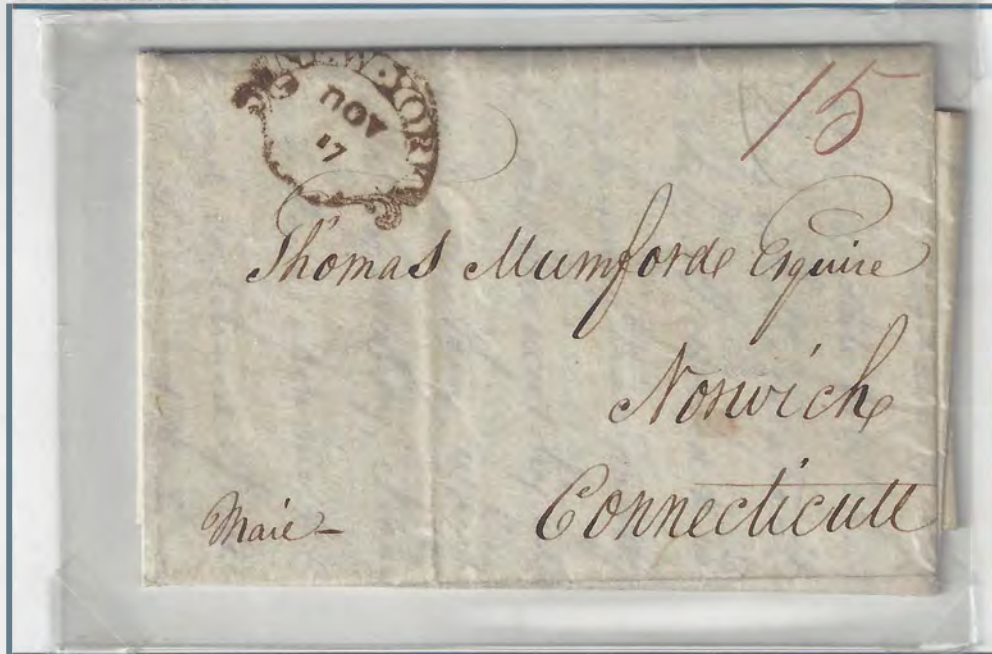 NEW-YORK
NOV
17
15
Thomas Mumford Esquire
Norwich
Connecticutt
Mail